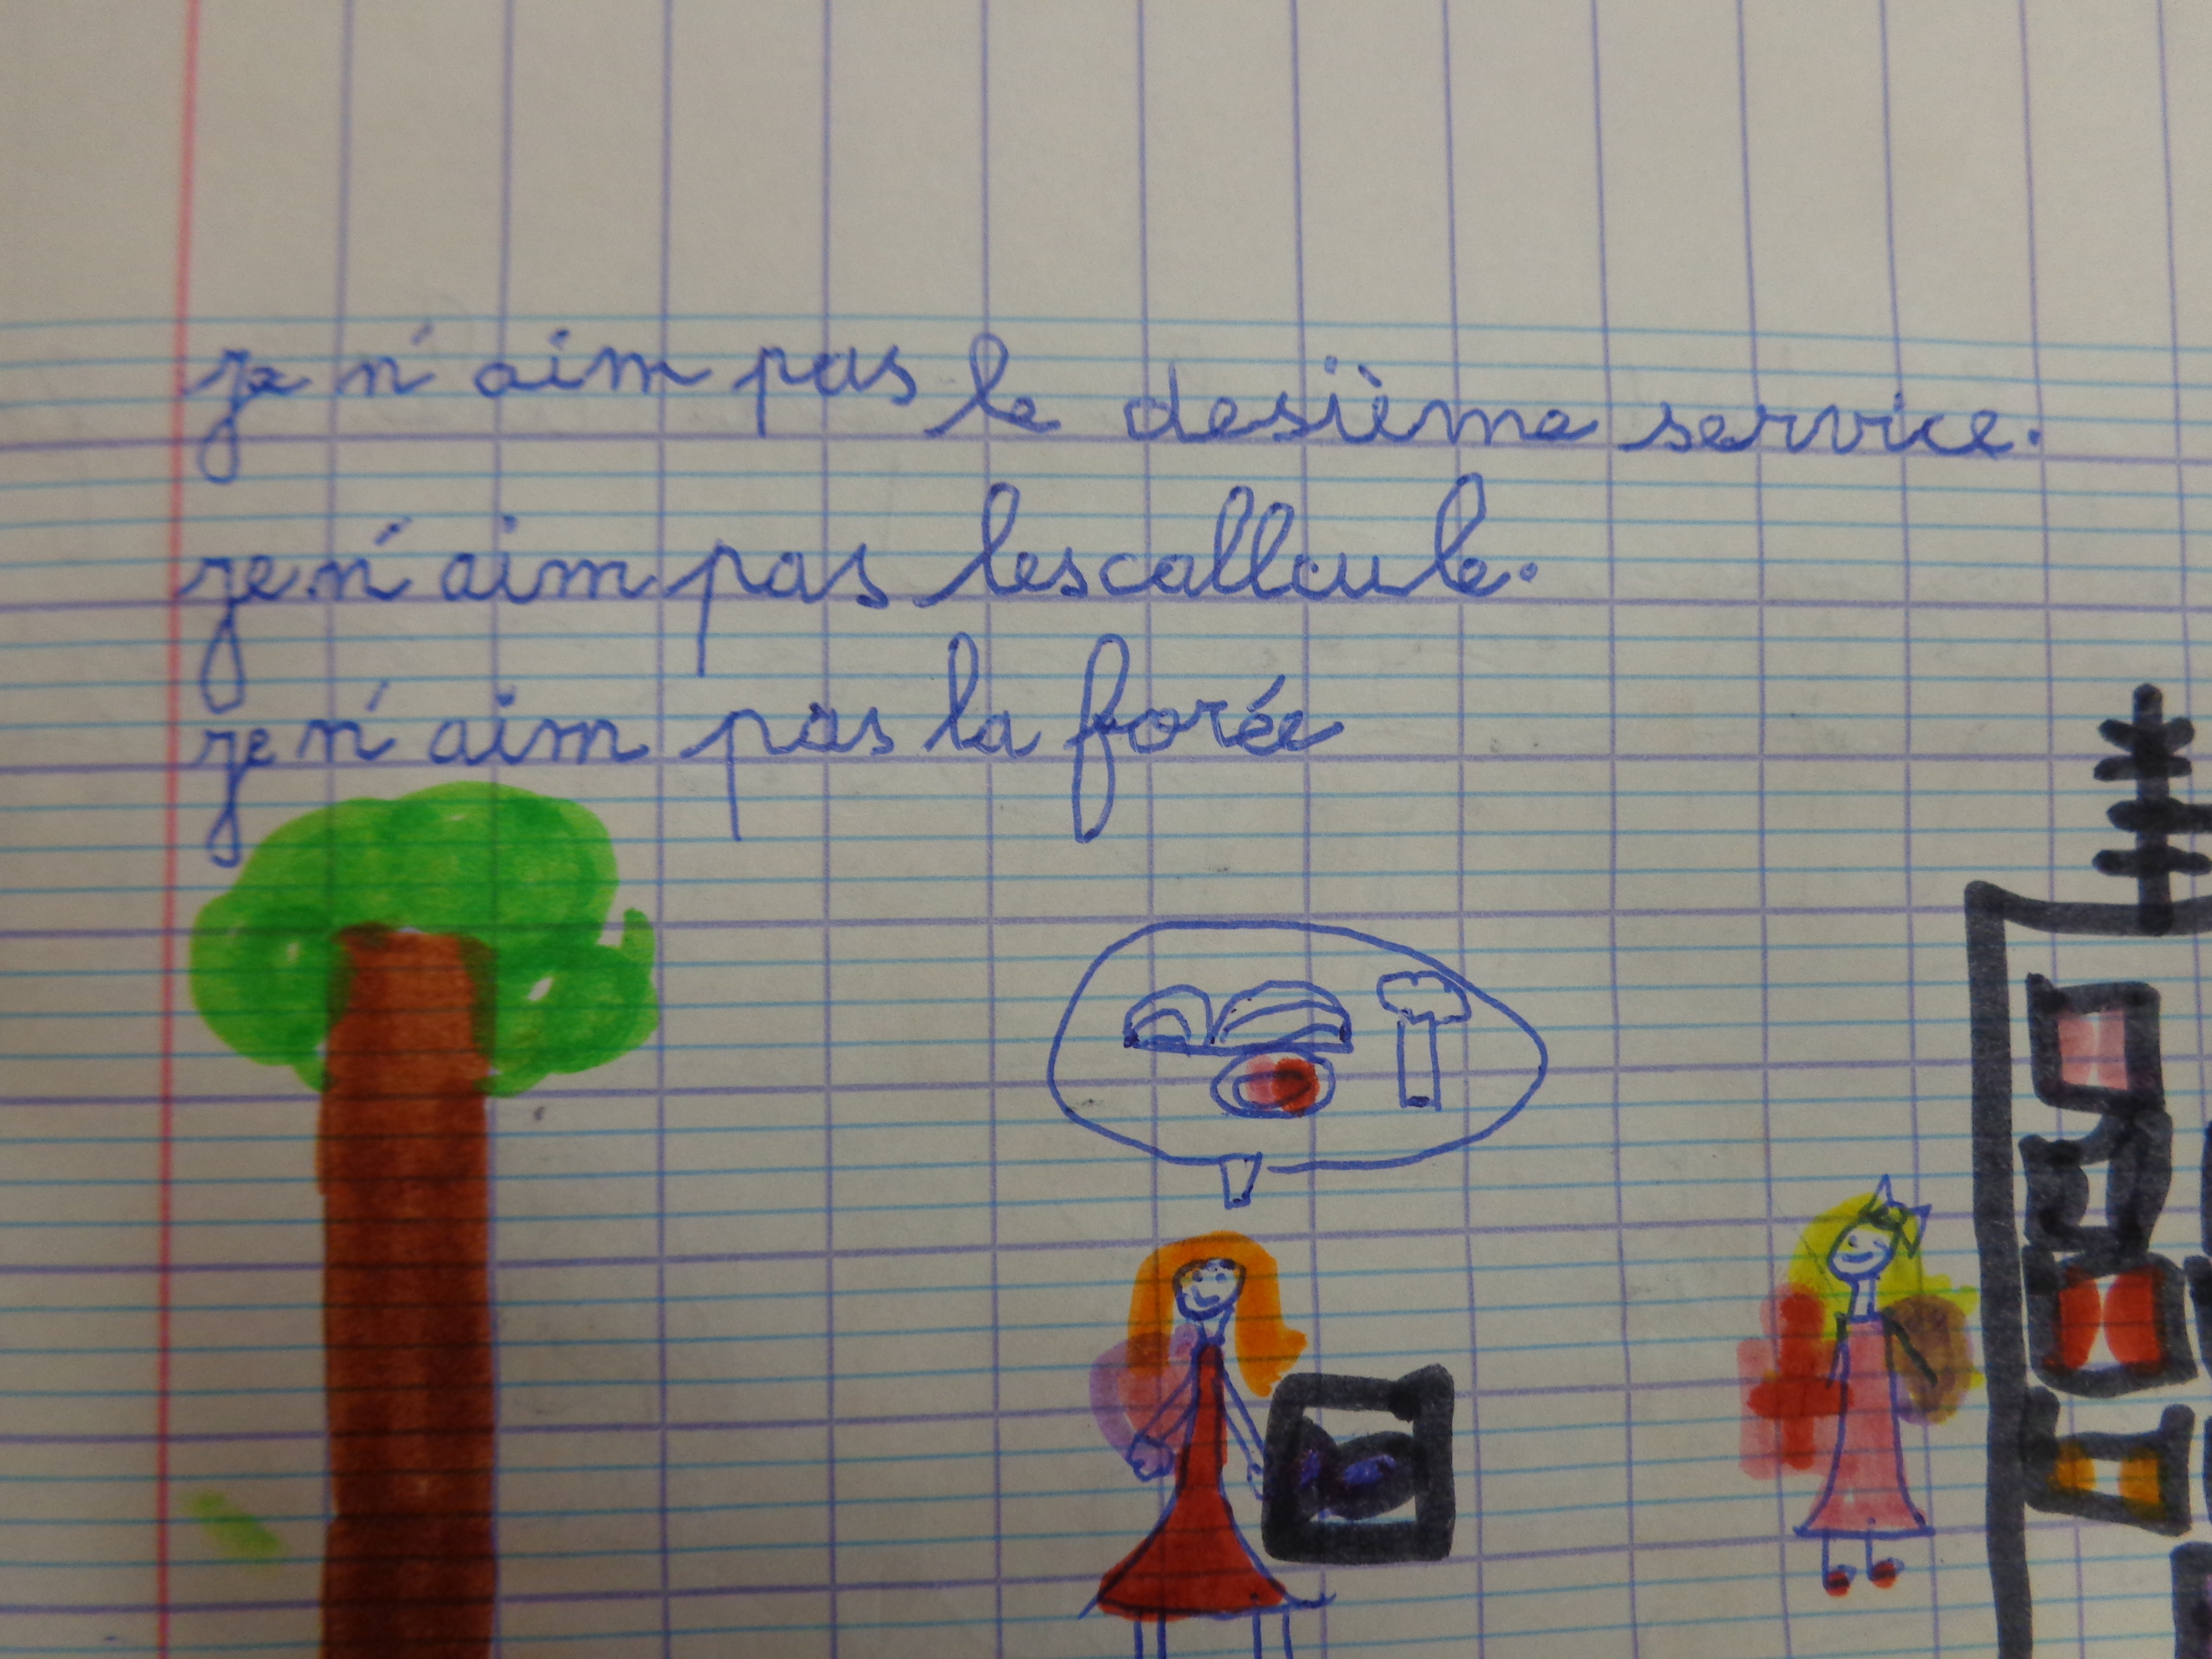 je n'aim pas le desième service.
je n'aim pas lescallcule.
je n'aim pas la forée